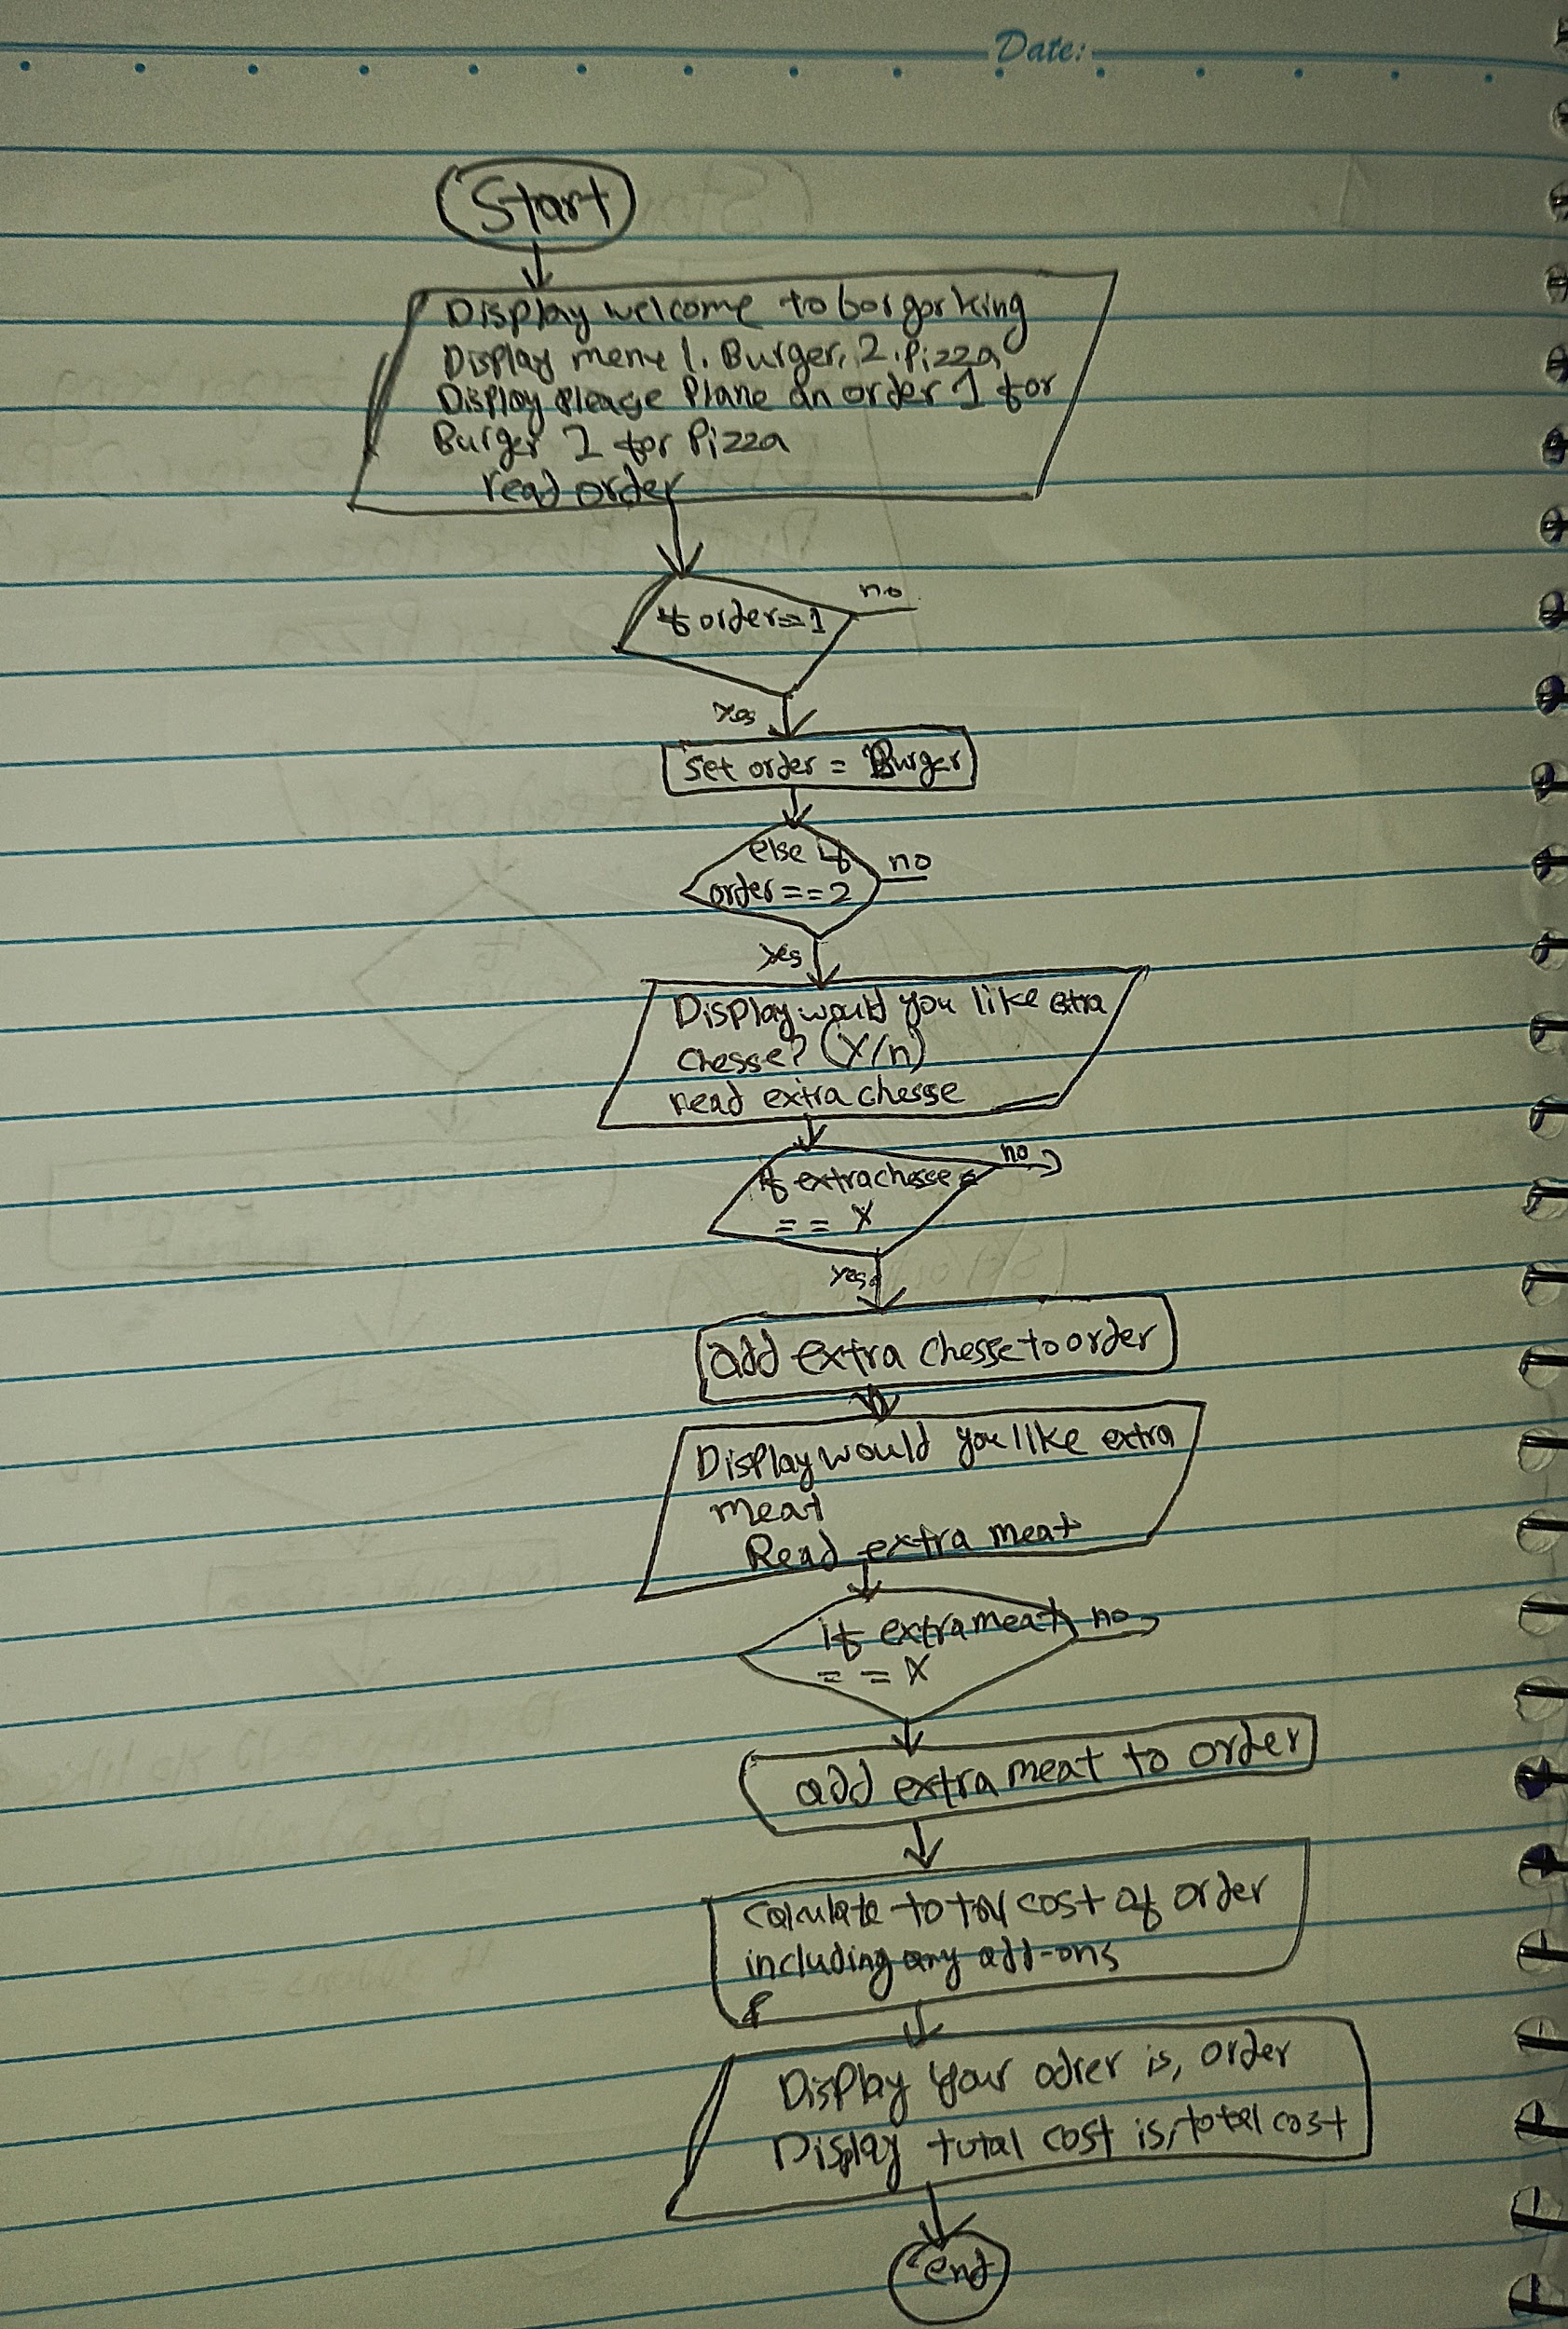 Date:
Start
Display welcome to borgor king
Display menu 1. Burger, 2. Pizza
Display please Plane an order 1 for
Burger 2 for Pizza
read order
if order==1
no
Yes
set order = Burger
else if
no
order==2
Yes
Display would you like extra
chesse? (Y/n)
read extra chesse
no
if extra chesse =
== Y
Yes
add extra chesse to order
Display would you like extra
meat
Read extra meat
if extra meat
no
== Y
add extra meat to order
calculate total cost of order
including any add-ons
Display your odrer is, order
Display total cost is, total cost
end